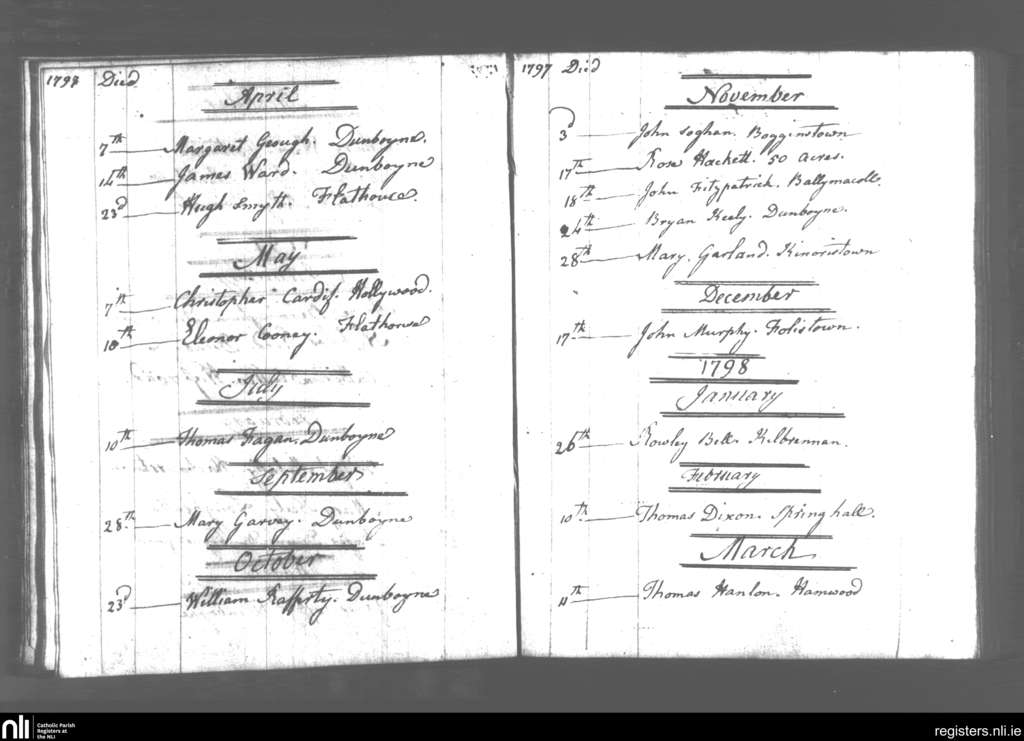 1797 Died
April
7th Margaret Geough. Dunboyne.
14th James Ward. Dunboyne
23d Hugh Smyth. Flathouse.
May
7th Christopher Cardif. Hollywood.
10th Eleonor Cooney. Flathouse
July
10th Thomas Fagan. Dunboyne
September
28th Mary Garvey. Dunboyne
October
23d William Rafferty. Dunboyne
1797 Died
November
3d John Soghan. Bogginstown
17th Rose Hackett. 50 acres.
18th John Fitzpatrick. Ballymacoll.
24th Bryan Keely. Dunboyne.
28th Mary. Garland. Kinoristown
December
17th John Murphy. Folistown.
1798
January
26th Rowley Bell. Kilbrennan.
February
10th Thomas Dixon. Springhall.
March
11th Thomas Hanlon. Hamwood
nli Catholic Parish
Registers at
the NLI
registers.nli.ie